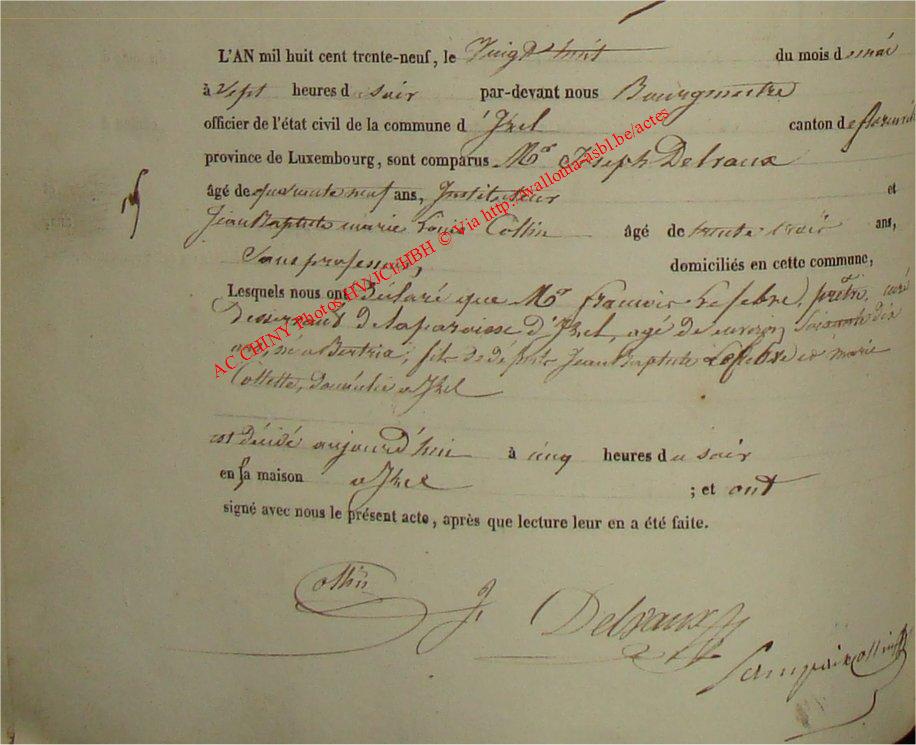 L'AN mil huit cent trente-neuf, le Vingt huit du mois de mai
à Sept heures du soir par-devant nous Bourgmestre
officier de l'état civil de la commune d'Izel canton de florenville
province de Luxembourg, sont comparus Mr Joseph Delvaux
âgé de quarante neuf ans, Instituteur et
Jean Baptiste marie Louis Collin âgé de trente trois ans,
Sans profession, domiciliés en cette commune,
Lesquels nous ont Déclaré que Mr francois Lefebre, prêtre, curé
Desservant de la paroisse d'Izel, agé de environ Soixante dix
ans, né a Bertrix, fils de défunts Jean Baptiste Lefebre et marie
Collette, domicilié a Izel
est décédé aujourd'hui à cinq heures du soir
en sa maison a Izel ; et ont
signé avec nous le présent acte, après que lecture leur en a été faite.
Collin J Delvaux
AC CHINY Photos HV/JCl/HBH © Via http://wallonia-asbl.be/actes